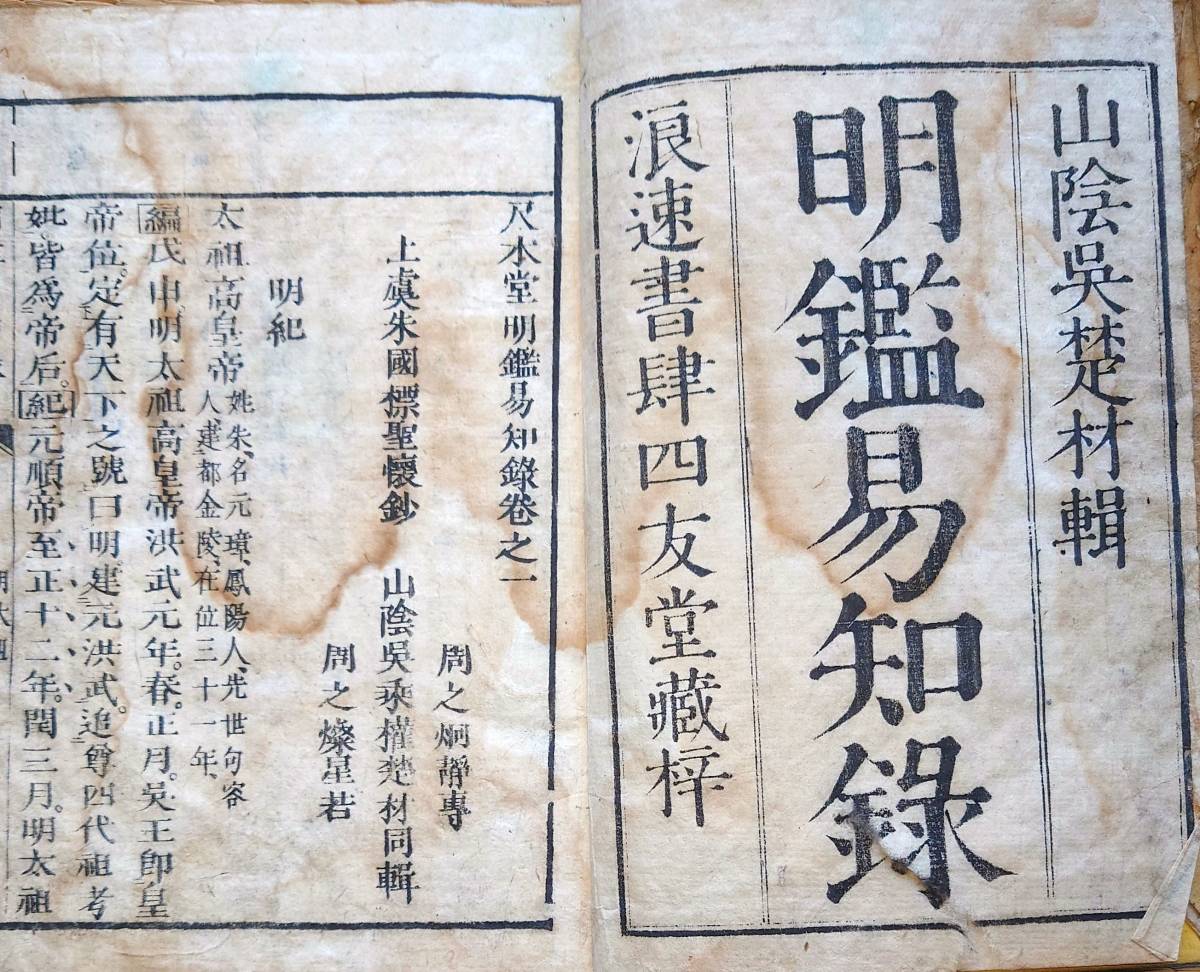 山陰吳楚材輯
明鑑易知錄
浪速書肆四友堂藏梓
尺木堂明鑑易知錄卷之一
周之炯靜專
上虞朱國標聖懷鈔 山陰吳乘權楚材同輯
周之燦星若
明紀
太祖高皇帝姓朱、名元璋、鳳陽人、先世句容
人、建都金陵、在位三十一年、
編戊申。明太祖高皇帝洪武元年。春。正月。吳王卽皇
帝位。定有天下之號曰明。建元洪武。追尊四代祖考
妣皆爲帝后。紀元順帝至正十二年。閏三月。明太祖